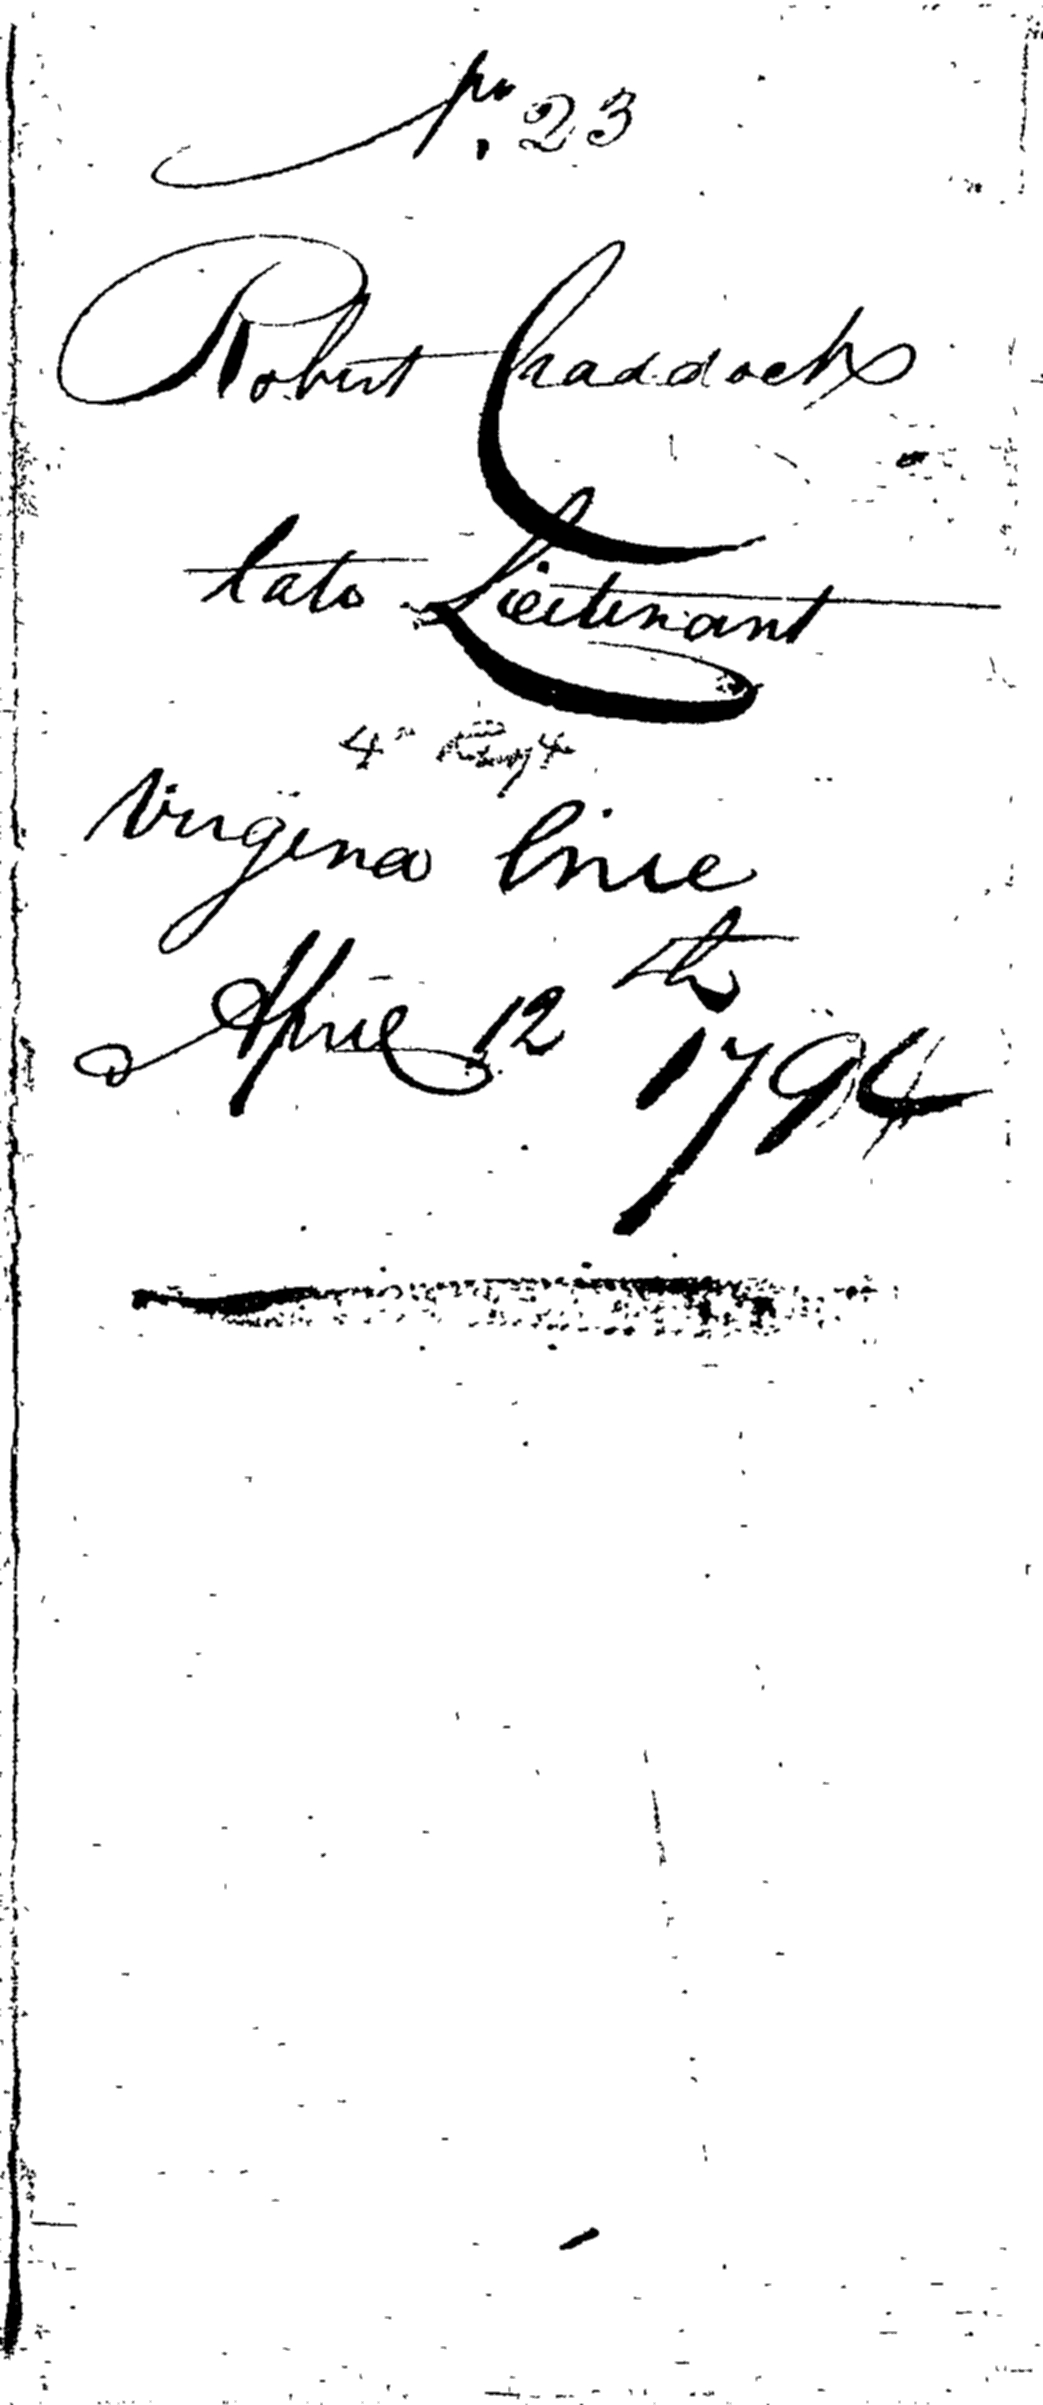 No. 23
Robert Craddock
late Lieutenant
4th Regt
Virginia line
April 12th
1794